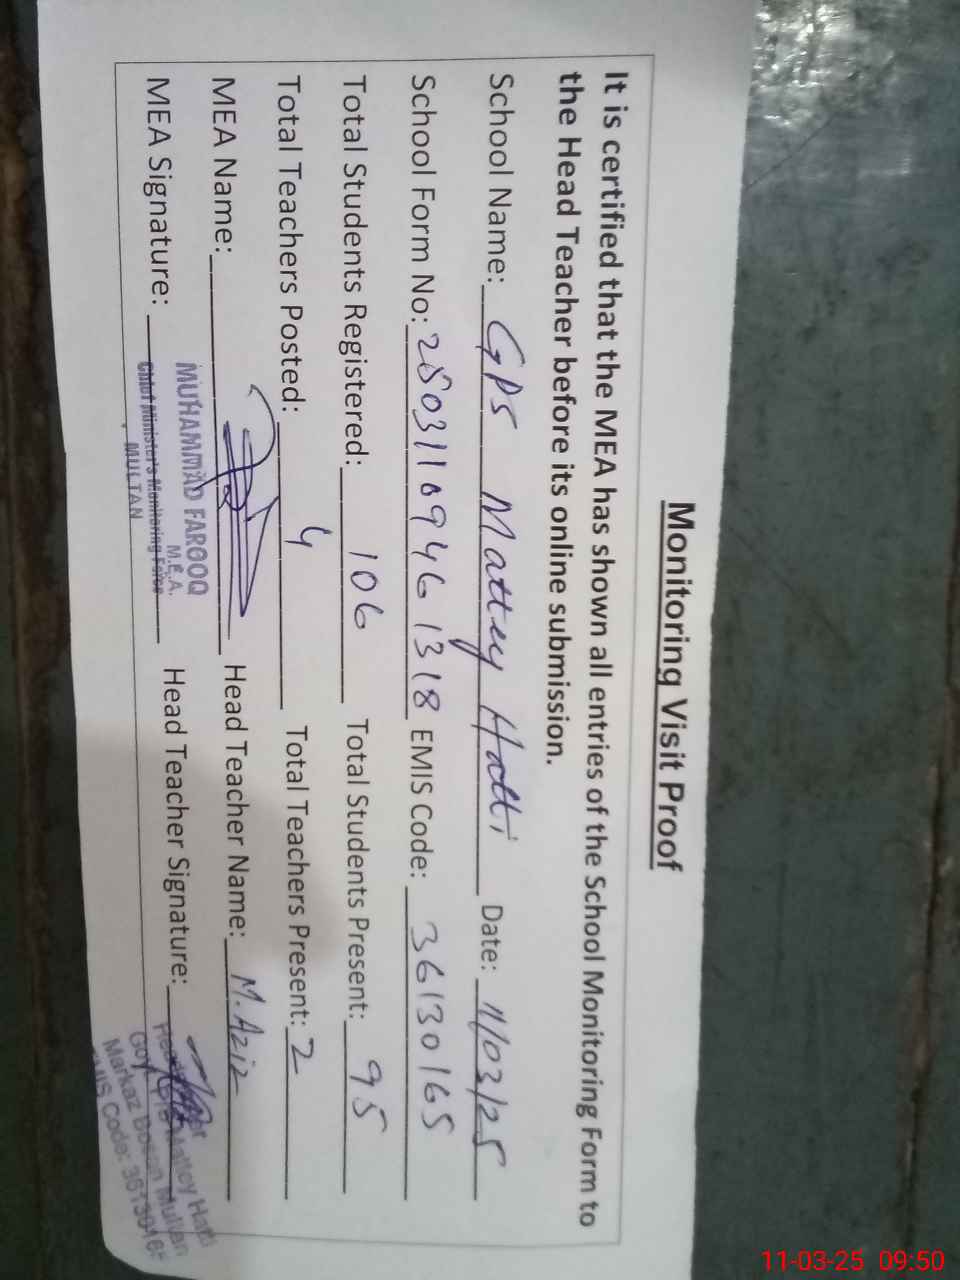 Monitoring Visit Proof
It is certified that the MEA has shown all entries of the School Monitoring Form to
the Head Teacher before its online submission.
School Name: GPS Mattey Hatti Date: 11/03/25
School Form No: 25031109461318 EMIS Code: 36130165
Total Students Registered: 106 Total Students Present: 95
Total Teachers Posted: 4 Total Teachers Present: 2
MEA Name: Head Teacher Name: M. Aziz
MEA Signature: Head Teacher Signature:
MUHAMMAD FAROOQ
M.E.A.
Chief Minister's Monitoring Force
MULTAN
Mattey Hatti
Markaz Bosan Multan
EMIS Code: 3613016
11-03-25 09:50